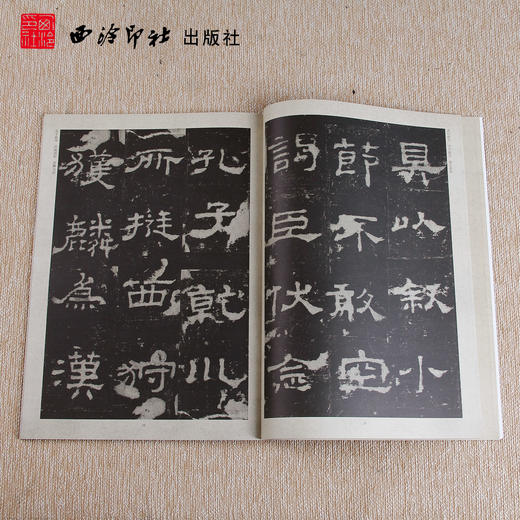 西泠印社
西泠印社 出版社
具以叙小
節不敢空
謁臣伏念
孔子乾川
所挺西狩
獲麟為漢